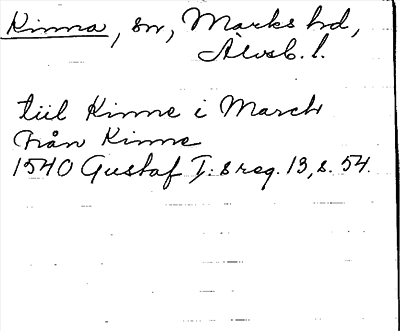 Kinna, sn, Marks hd,
Älvsb. l.
tiil Kinne i March
Från Kinne
1540 Gustaf I:s reg. 13, s. 54.